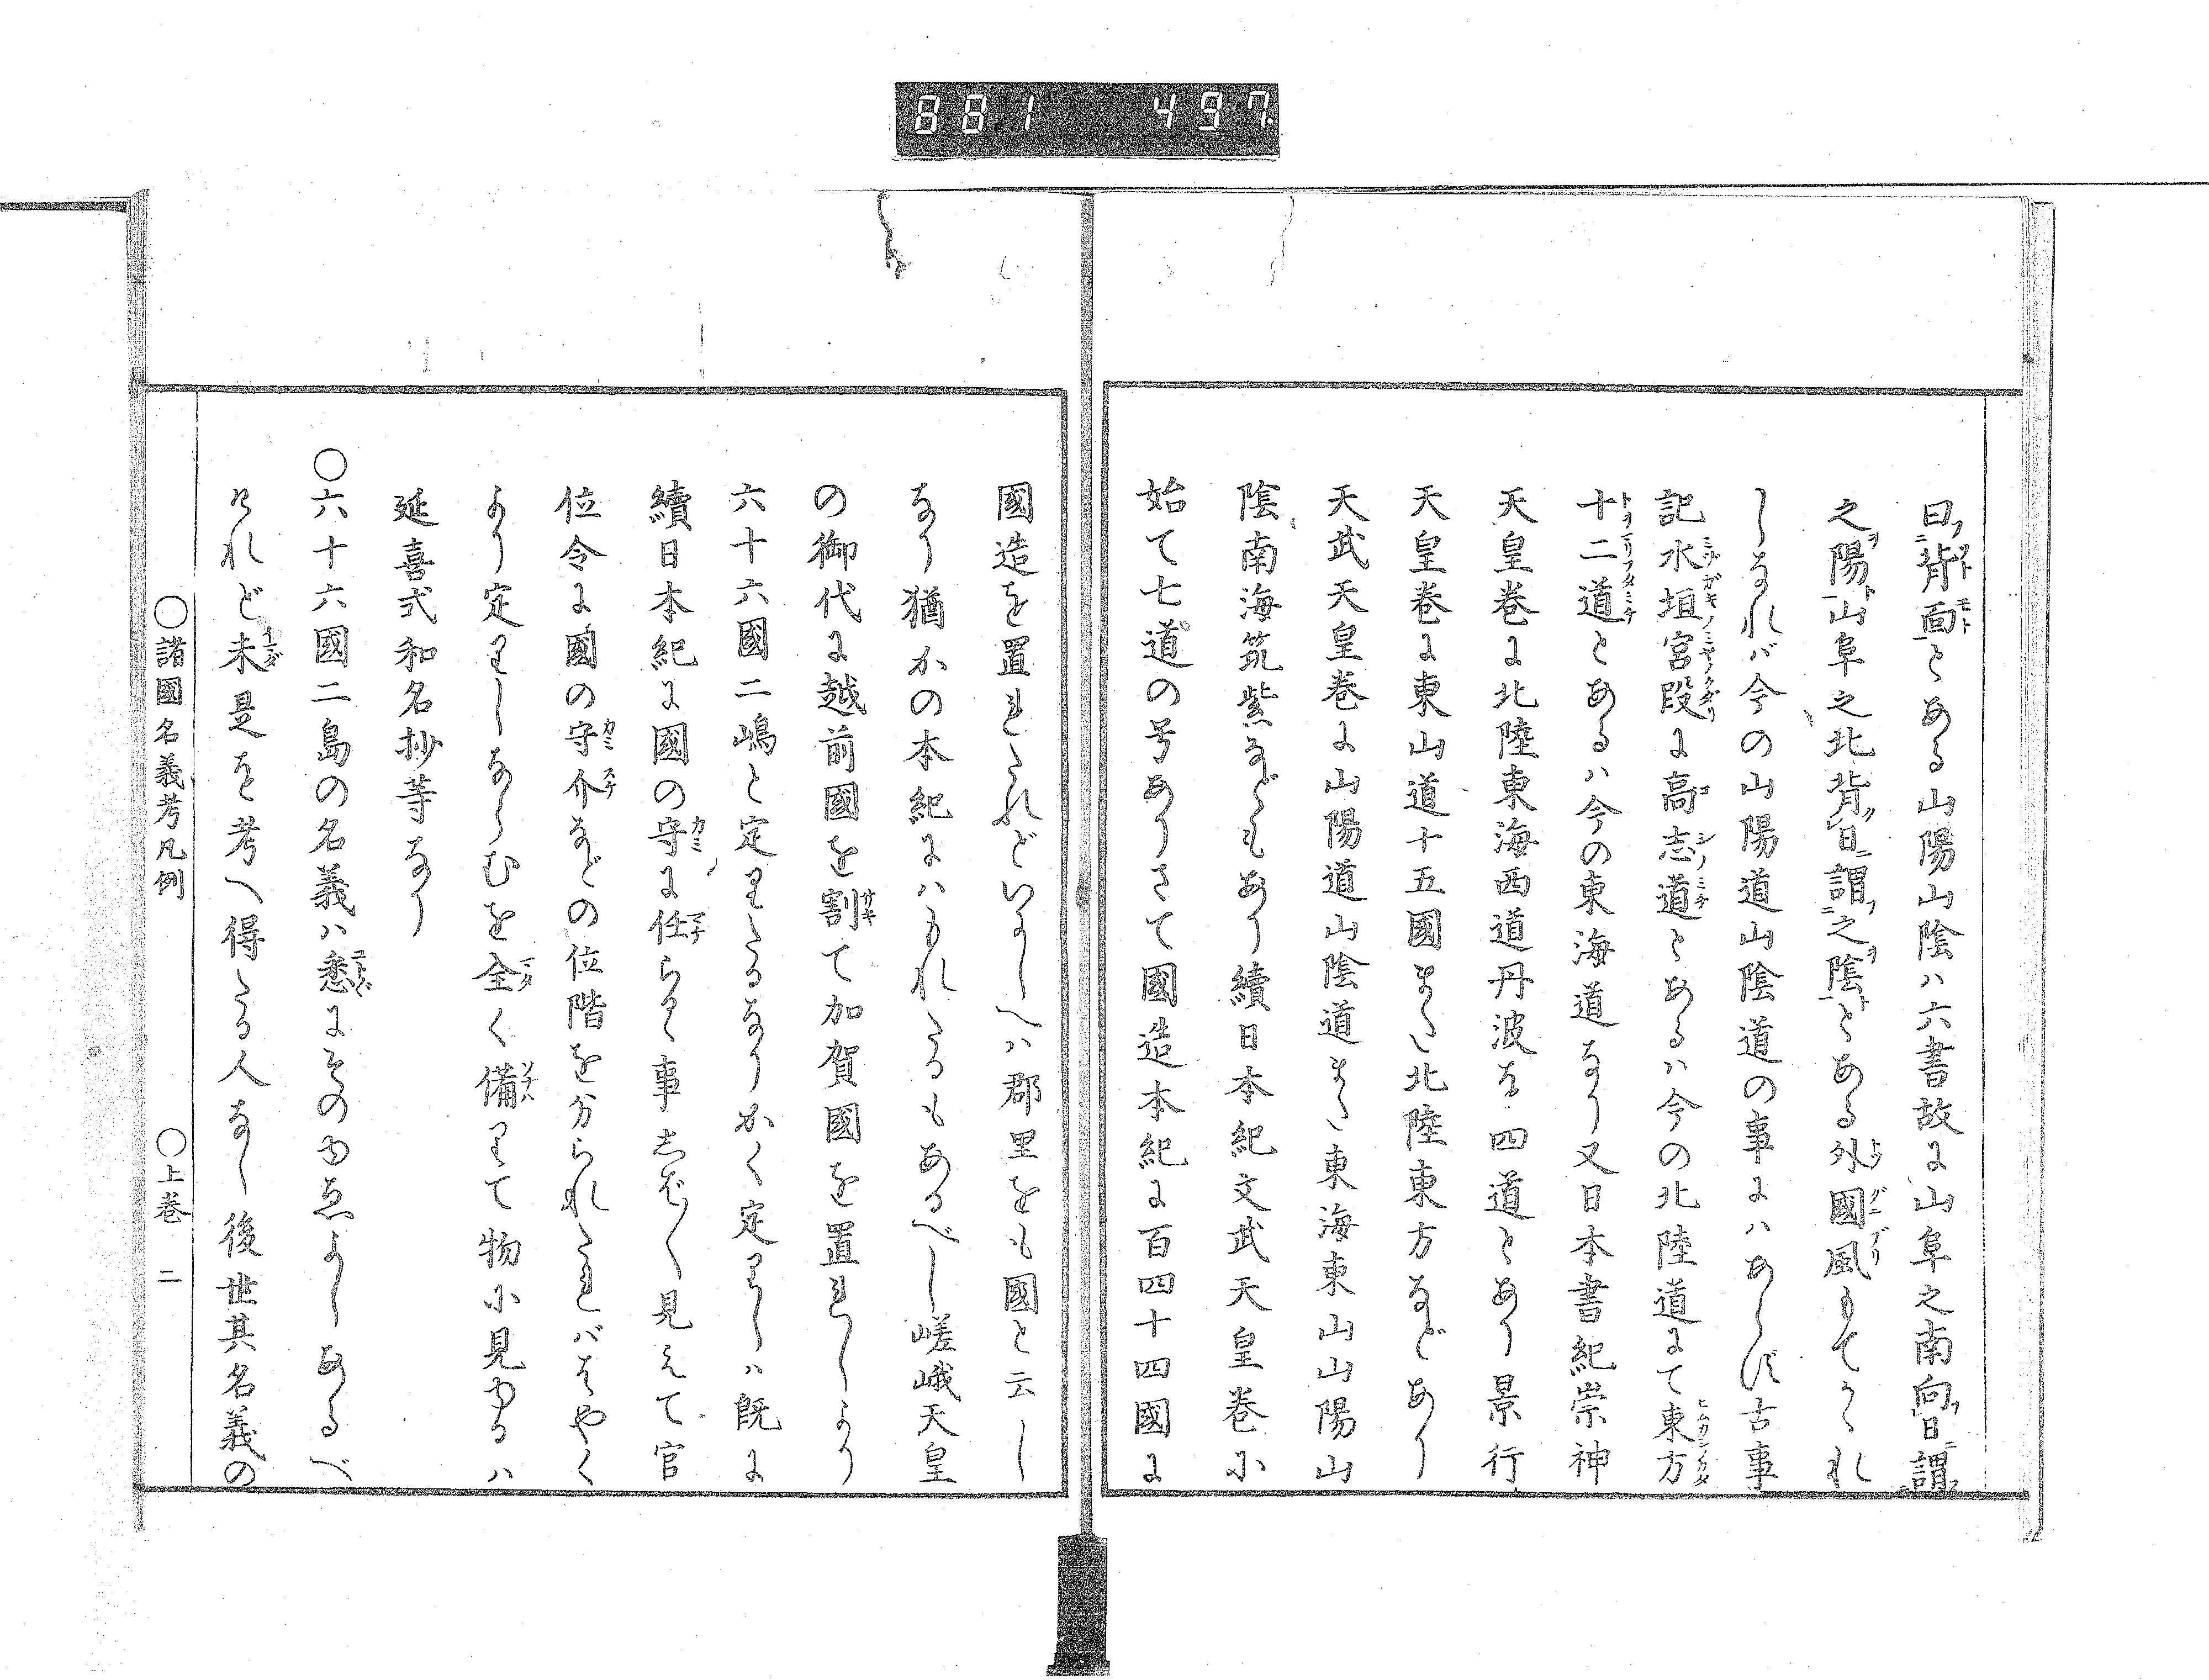 881 497.
曰背面とある山陽山陰ハ六書故に山阜之南向日謂
之陽山阜之北背日謂之陰とある外國風もてかゝれ
しなれバ今の山陽道山陰道の事にハあらず古事
記水垣宮段に高志道とあるハ今の北陸道にて東方
十二道とあるハ今の東海道なり又日本書紀崇神
天皇巻に北陸東海西道丹波を四道とあり景行
天皇巻に東山道十五國また北陸東方などあり
天武天皇巻に山陽道山陰道また東海東山山陽山
陰南海筑紫などもあり續日本紀文武天皇巻小
始て七道の号ありさて國造本紀に百四十四國に
國造を置れたれどいにしへハ郡里をも國と云し
なり猶かの本紀にハもれたるもあるべし嵯峨天皇
の御代に越前國を割て加賀國を置れしより
六十六國二嶋と定りたるなりかく定りしハ既に
續日本紀に國の守に任らるゝ事志ば〱見えて官
位令に國の守介などの位階を分られたれバはやく
より定りしならむを全く備りて物小見ゆるハ
延喜式和名抄等なり
〇六十六國二島の名義ハ悉にそのゆゑよしあるべ
けれど未是を考へ得たる人なし後世其名義の
〇諸國名義考凡例 〇上巻 二